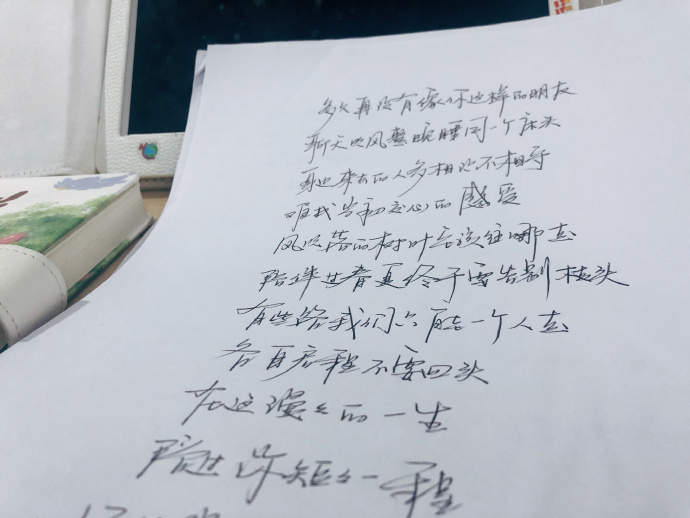 多久再没有像你这样的朋友
聊天吹风整晚睡同一个床头
身边来去的人多相近不相守
唯我当初交心的感受
风吹落的树叶会该往哪去
陪伴过春夏终于要告别枝头
有些路我们只能一个人去
各自启程不要回头
在这漫々的一生
陪过你短々一程